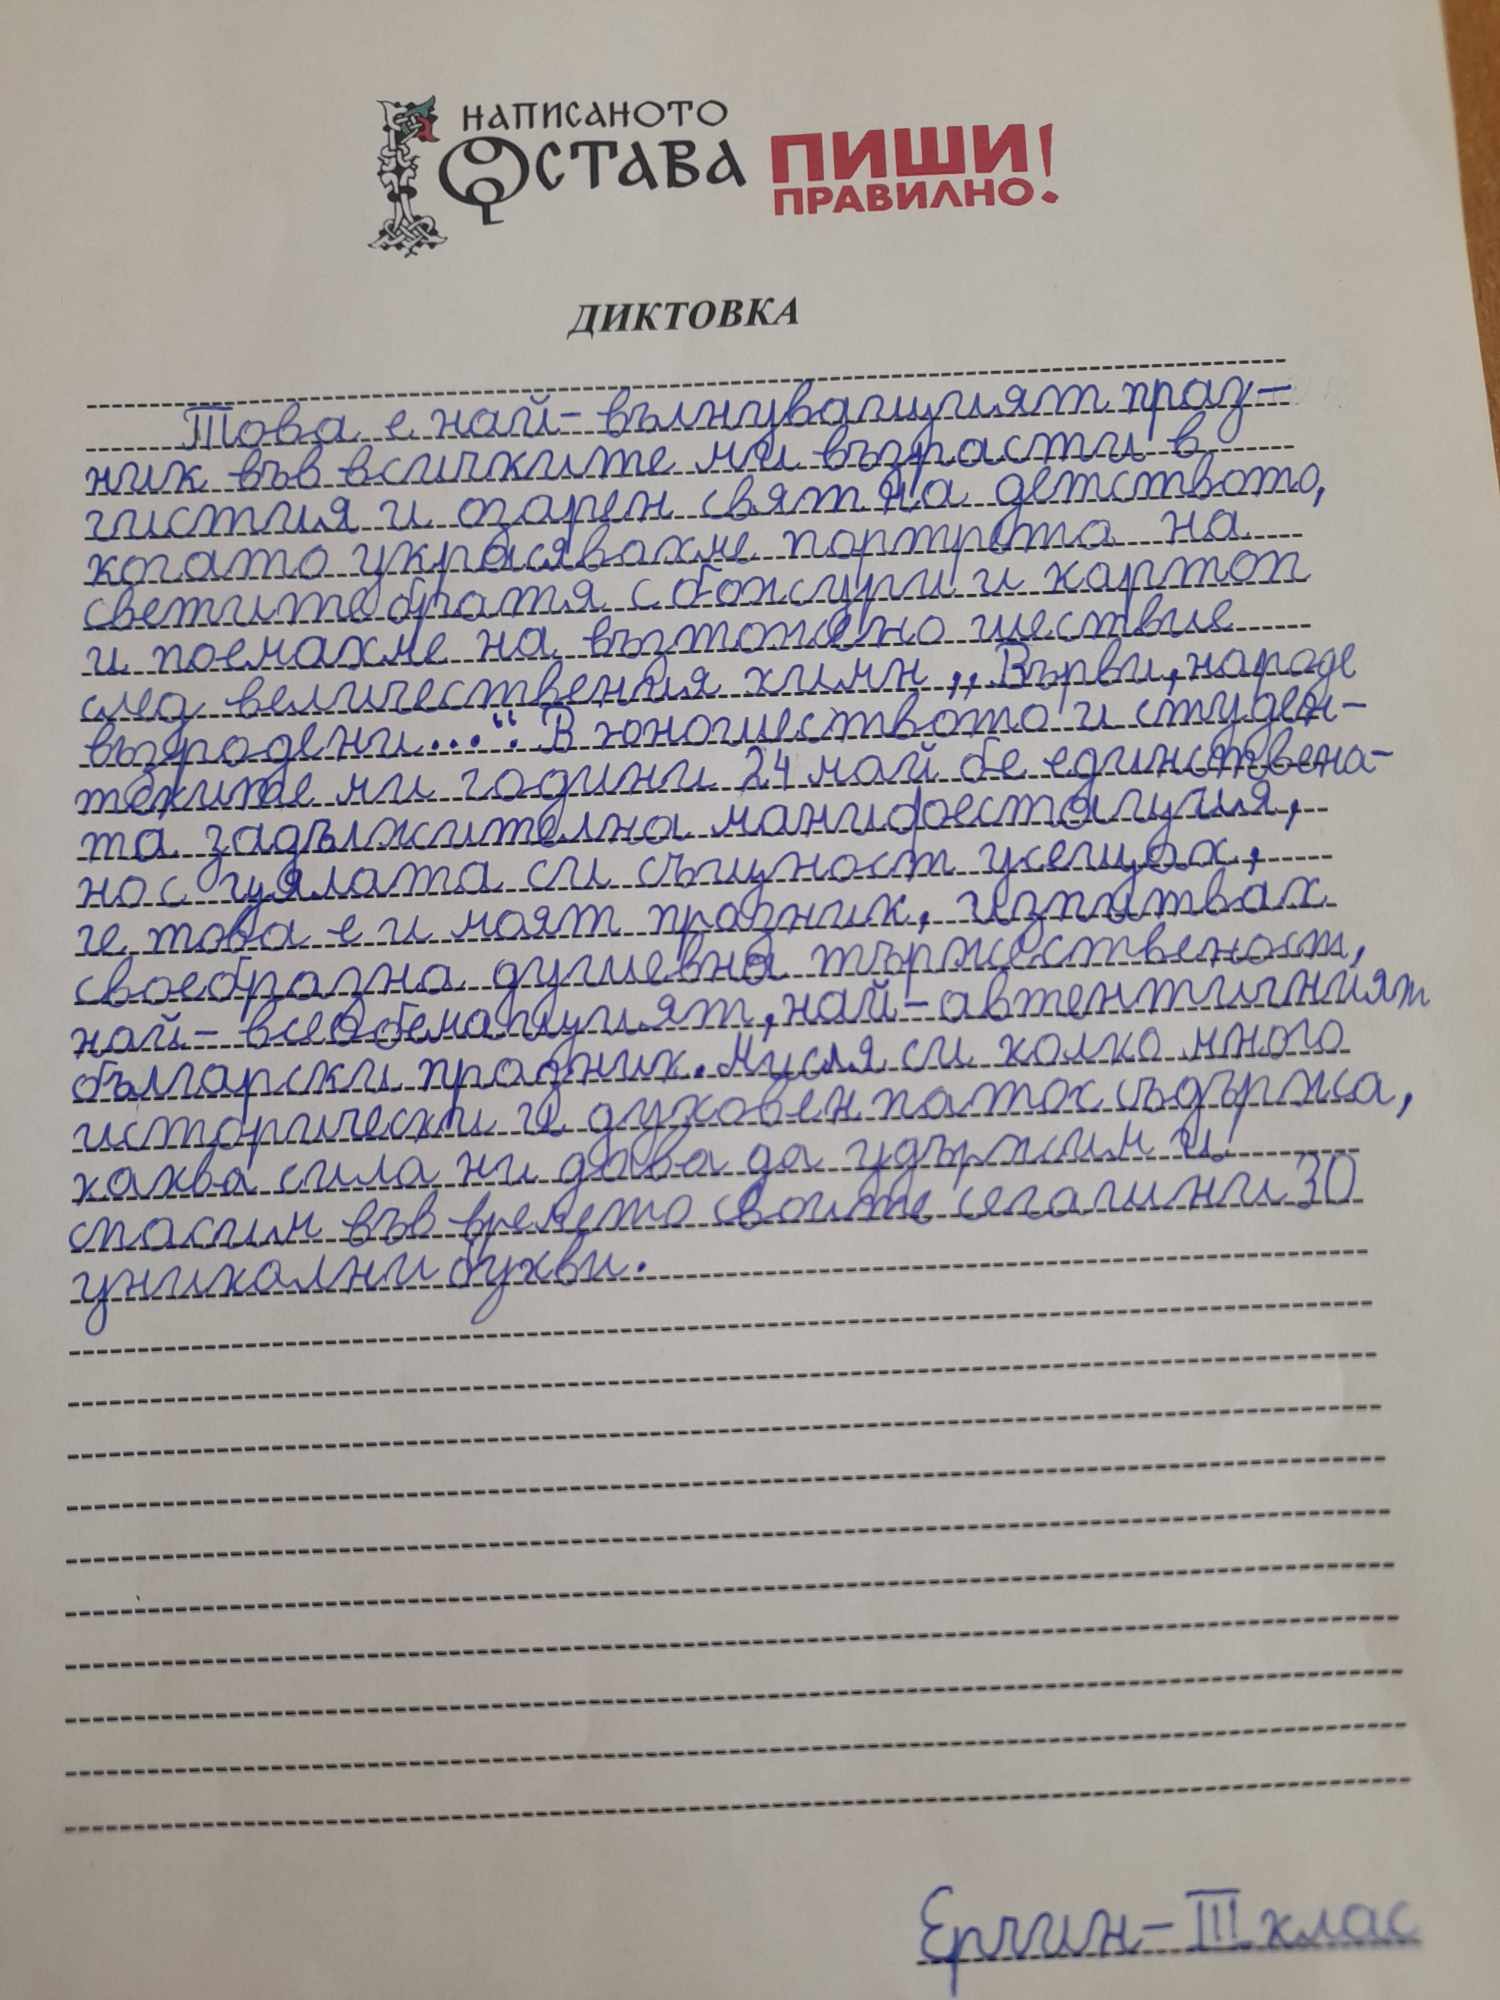 НАПИСАНОТО
ОСТАВА
ПИШИ!
ПРАВИЛНО
ДИКТОВКА
Това е най-вълнуващият праз-
ник във всичките ми възрасти в
чистия и озарен свят на детството,
когато украсявахме портрета на
светите братя с божури и картоп
и поемахме на възторжено шествие
след величествения химн „Върви, народе
възродени...“. В юношеството и студен-
теките ми години 24 май бе единствена-
та задължителна манифестация,
но с цялата си същност усещах,
че това е и моят празник, изпитвах
своебразна душевна тържественост,
най-всеобемащият, най-автентичният
български празник. Мисля си колко много
исторически и духовен паток съдържа,
каква сила ни дава да удържим и
спасим във времето своите сегашни 30
уникални букви.
Ерчин-III клас